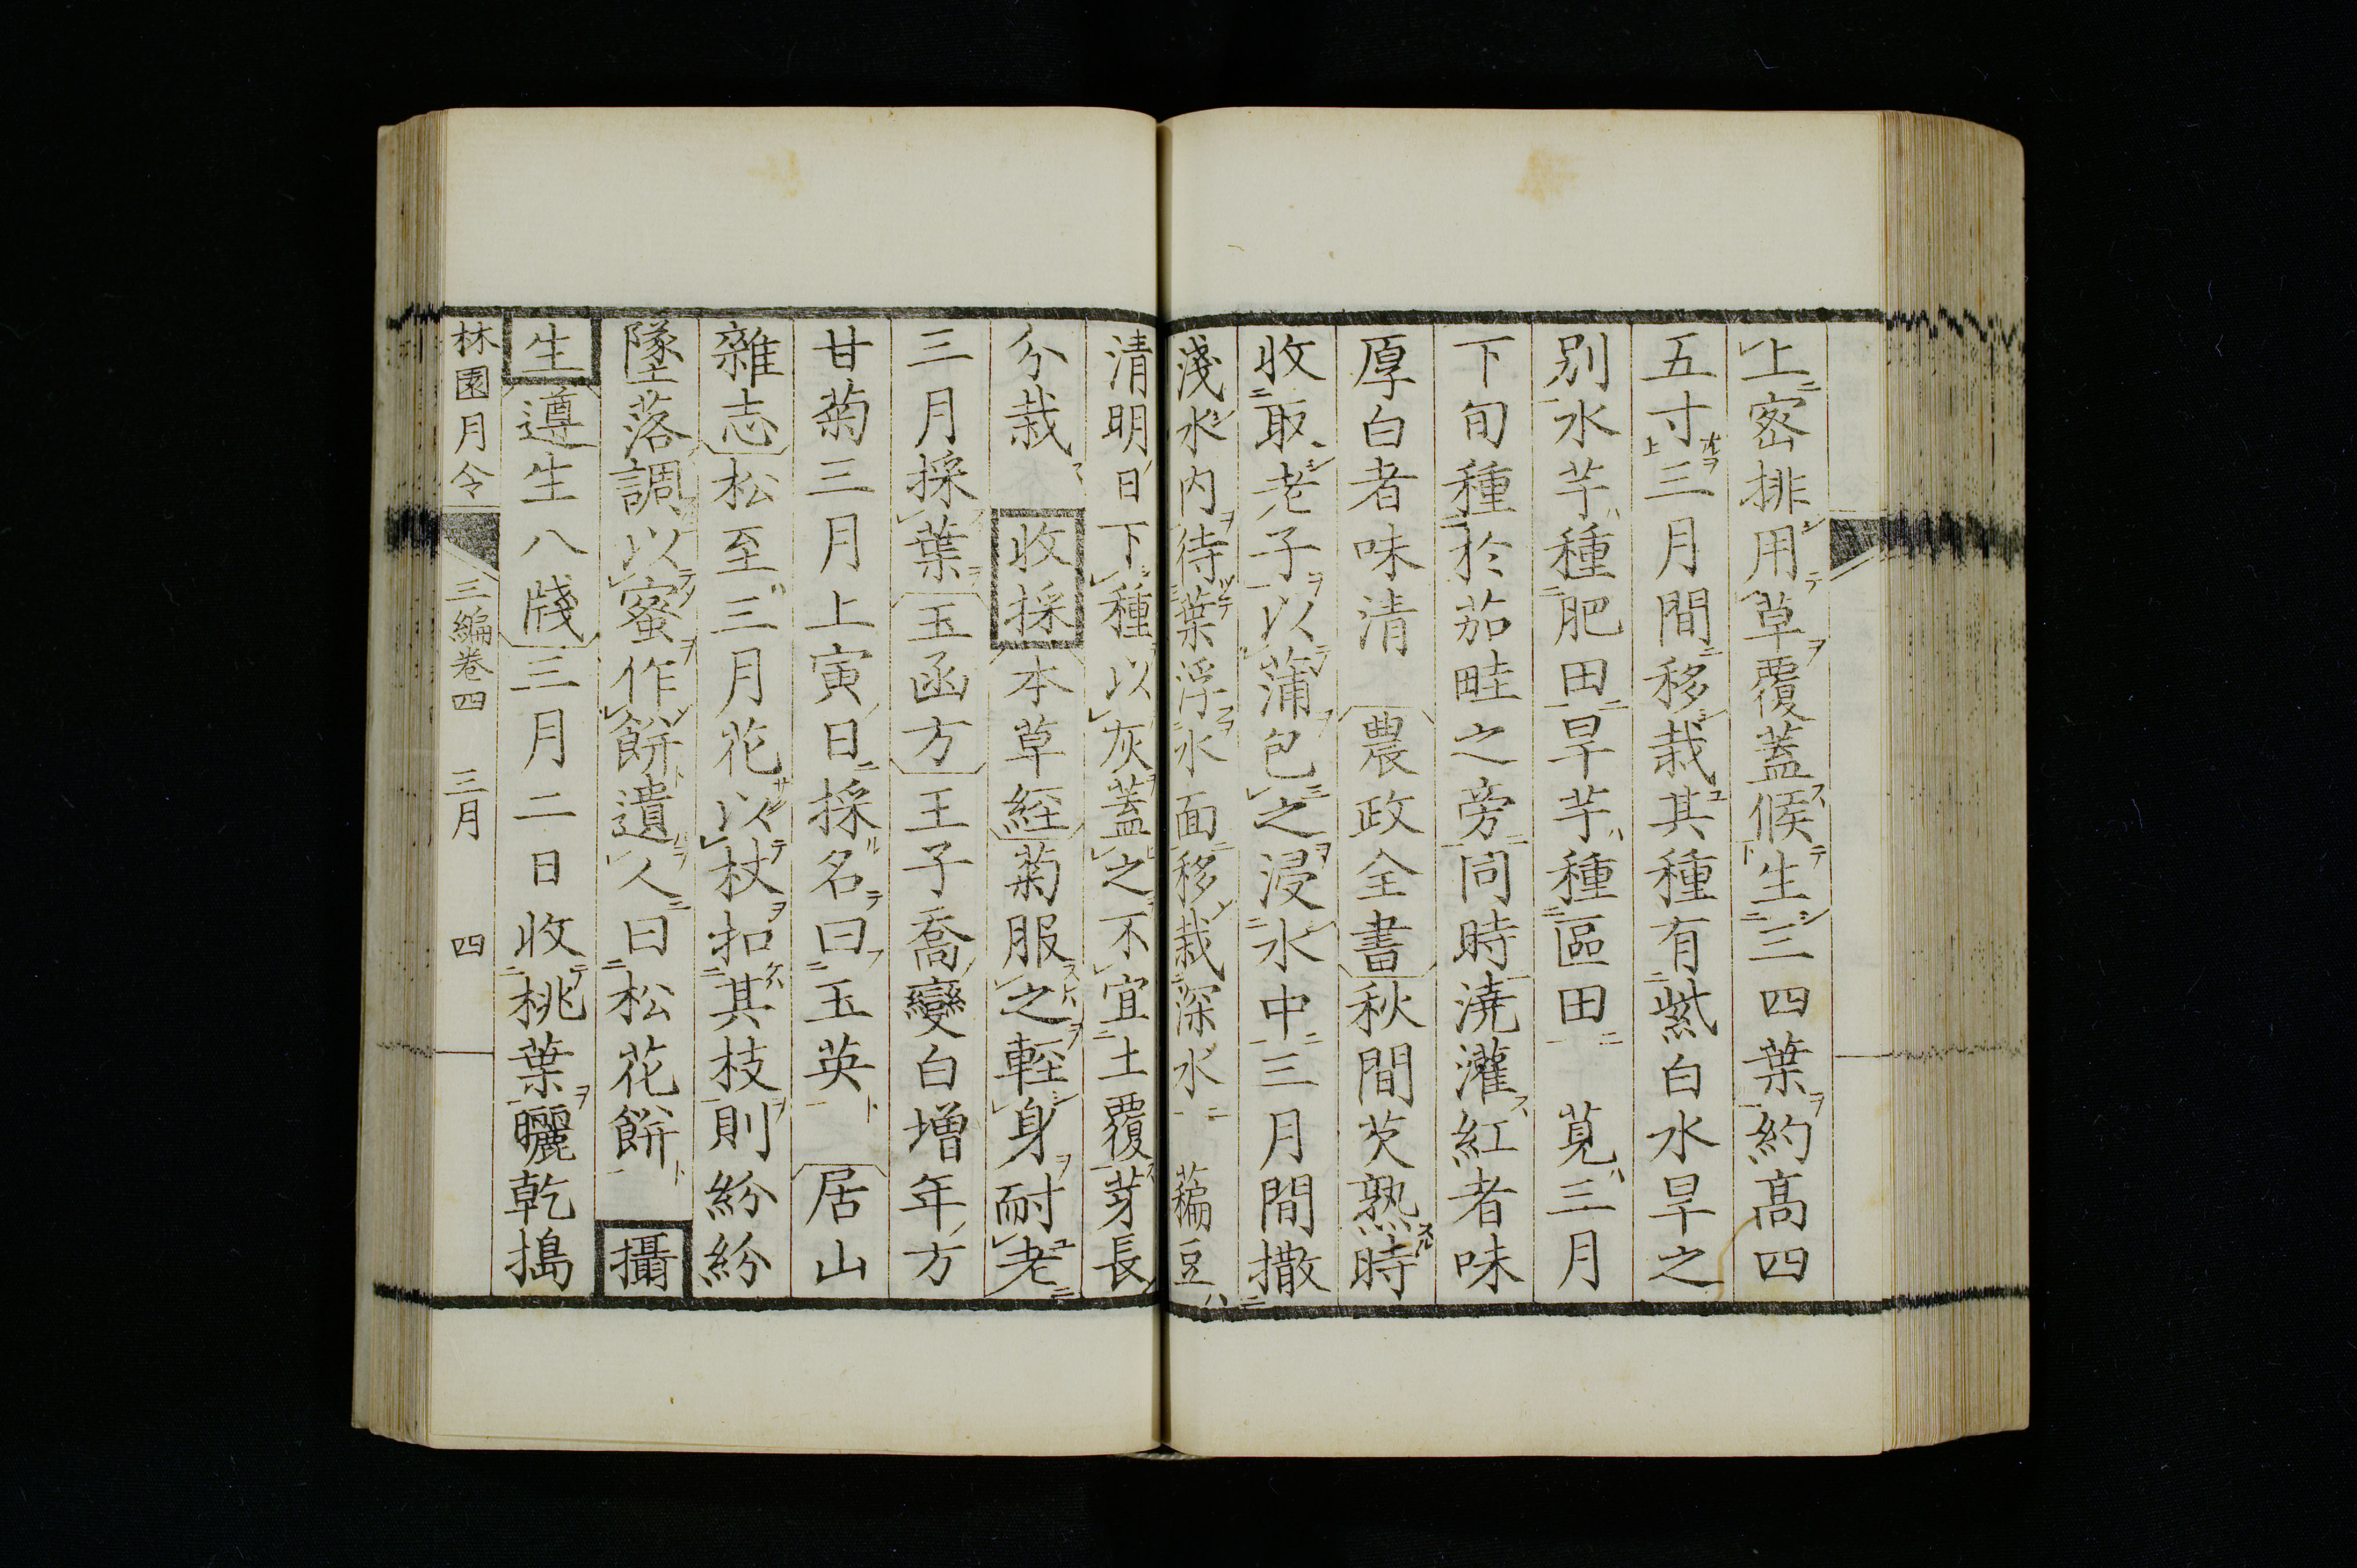 上密排用草覆蓋候生三四葉約高四
五寸三月間移栽其種有紫白水旱之
別水芋種肥田旱芋種區田　莧三月
下旬種於茄畦之旁同時澆灌紅者味
厚白者味清　農政全書秋間芡熟時
收取老子以蒲包之浸水中三月間撒
淺水内待葉浮水面移栽深水　藊豆
清明日下種以灰蓋之不宜土覆芽長
分栽　收採本草經菊服之輕身耐老
三月採葉玉函方王子喬變白增年方
甘菊三月上寅日採名曰玉英　居山
雜志松至三月花以杖扣其枝則紛紛
墜落調以蜜作餅遺人曰松花餅　攝
生遵生八牋三月二日收桃葉曬乾搗
林園月令　三編卷四　三月　四